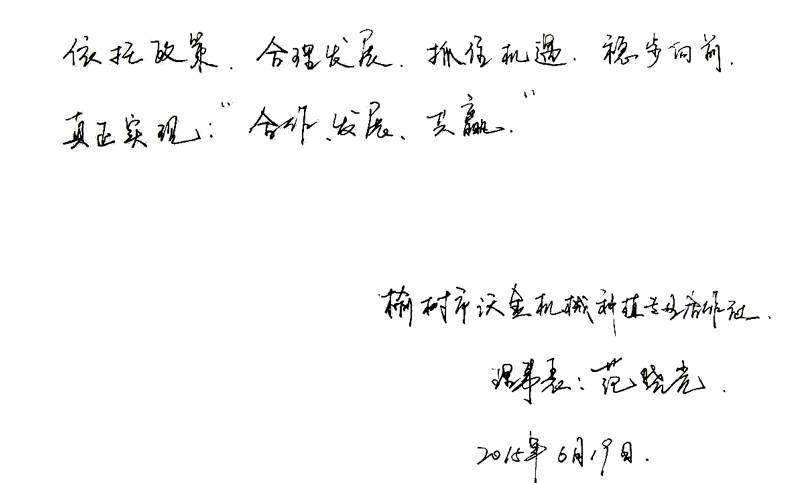 依托政策.合理发展.抓住机遇.稳步向前.
真正实现:"合作、发展、共赢."
榆树市沃金机械种植专业合作社.
理事长:范晓光.
2015年6月19日.